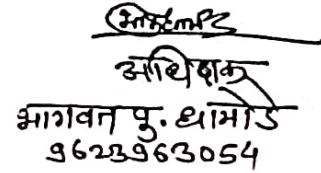 अधिक्षक
भागवत पु. धामोडे
9623963054